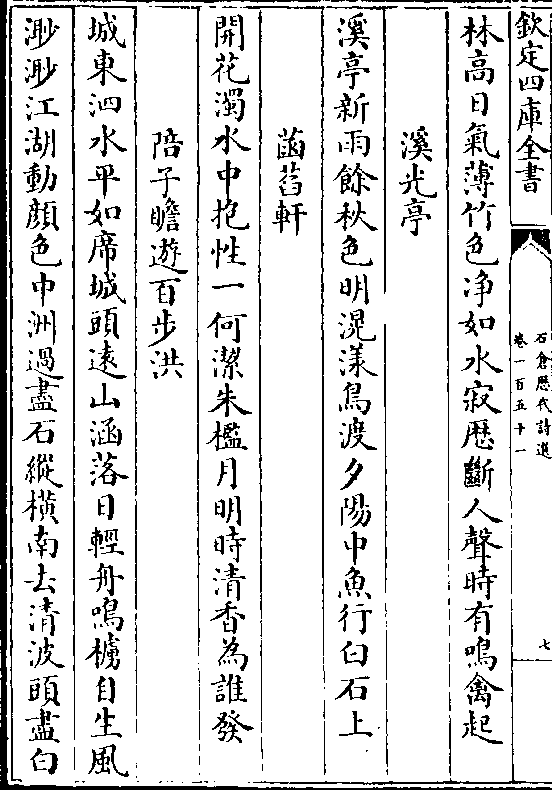 欽定四庫全書
石倉歷代詩選
卷一百五十一
七
林高日氣薄竹色净如水寂歷斷人聲時有鳴禽起
溪光亭
溪亭新雨餘秋色明滉漾鳥渡夕陽中魚行白石上
菡萏軒
開花濁水中抱性一何潔朱檻月明時清香為誰發
陪子瞻遊百步洪
城東泗水平如席城頭遠山涵落日輕舟鳴櫓自生風
渺渺江湖動顔色中洲過盡石縱横南去清波頭盡白